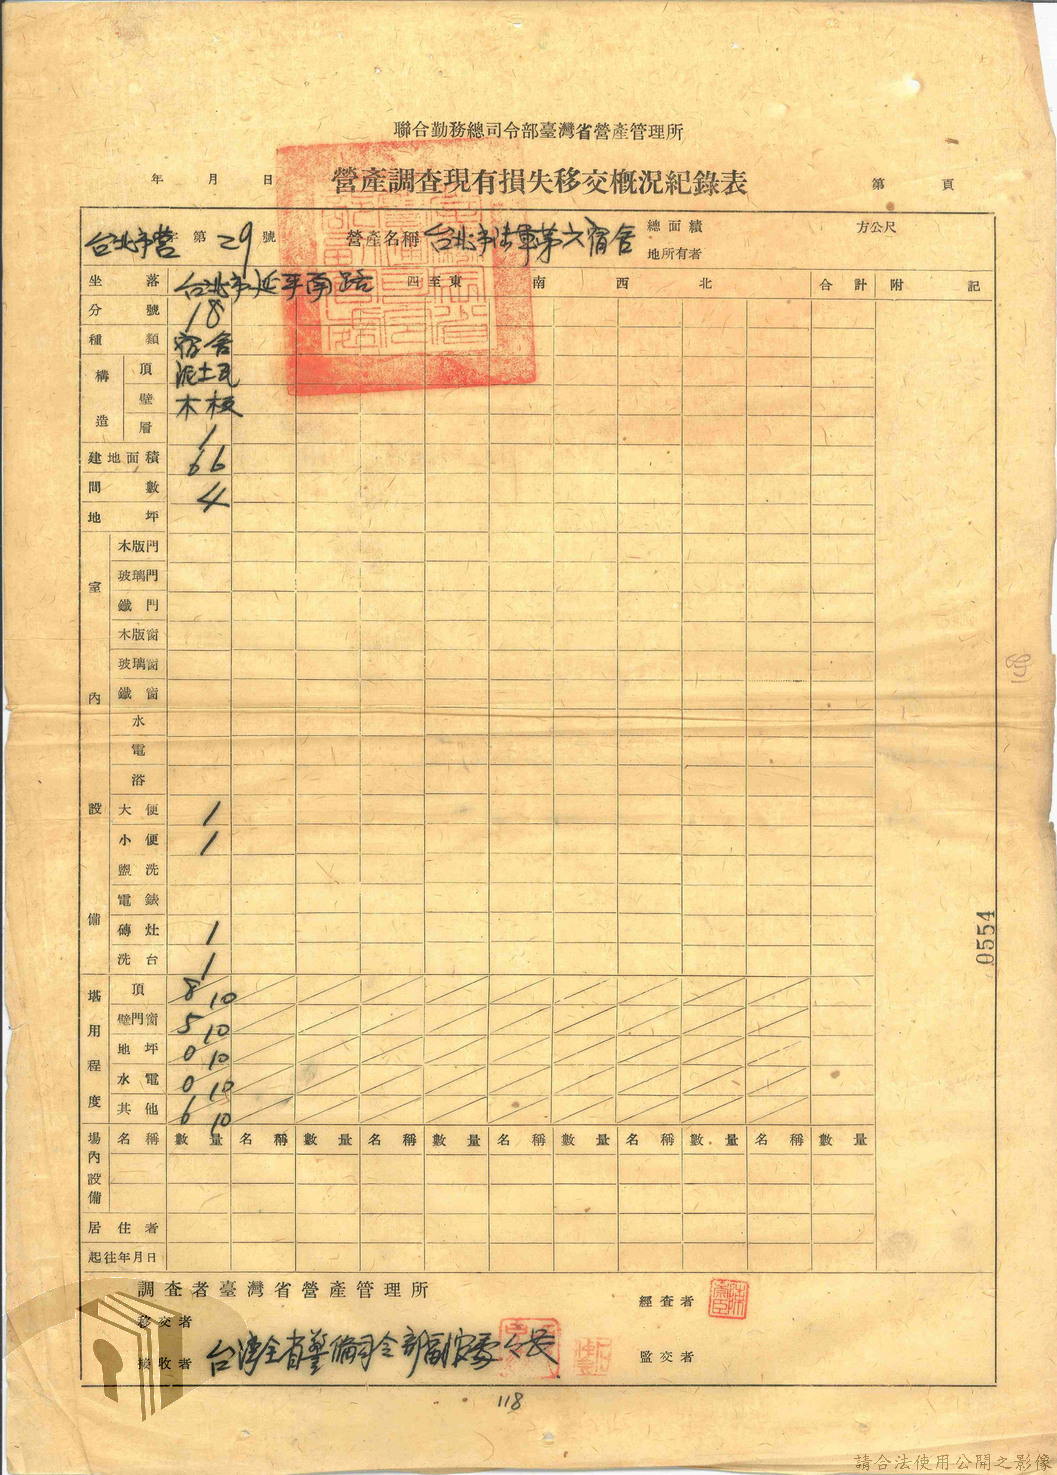 聯合勤務總司令部臺灣省營產管理所
年 月 日 營產調查現有損失移交概況紀錄表 第 頁
台北市營字第29號 營產名稱 台北市法軍第六宿舍 總面積 方公尺
地所有者
坐落 台北市延平南路 四至東 南 西 北 合計 附記
分號 18
種類 宿舍
構造 頂 泥土瓦
壁 木板
層 1
建地面積 66
間數 4
地坪
室內設備 木版門
玻璃門
鐵門
木版窗
玻璃窗
鐵窗
水
電
浴
大便 1
小便 1
盥洗
電錶
磚灶 1
洗台 1
堪用程度 頂 8 10
壁門窗 5 10
地坪 0 10
水電 0 10
其他 6 10
場內設備 名稱 數量 名稱 數量 名稱 數量 名稱 數量 名稱 數量 名稱 數量
居住者
起往年月日
調查者臺灣省營產管理所 經查者
移交者
接收者 台灣全省警備司令部副 監交者
118
0554
請合法使用公開之影像